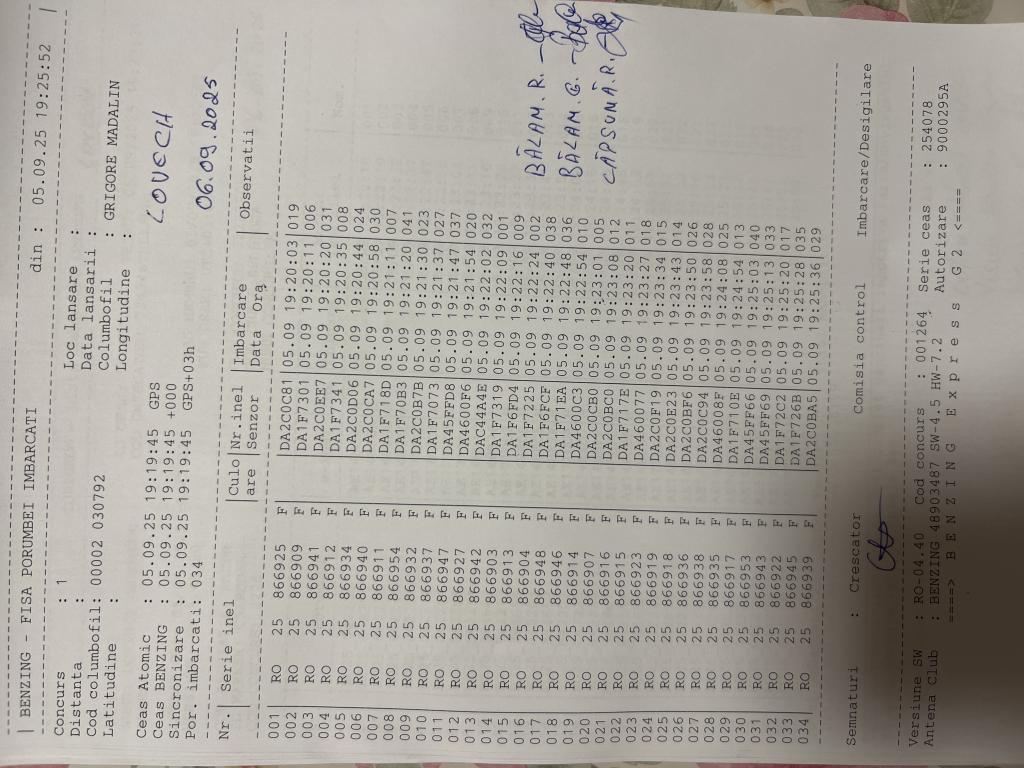 | BENZING - FISA PORUMBEI IMBARCATI din : 05.09.25 19:25:52 |
Concurs : 1 Loc lansare :
Distanta : Data lansarii :
Cod columbofil: 00002 030792 Columbofil : GRIGORE MADALIN
Latitudine : Longitudine :
Ceas Atomic : 05.09.25 19:19:45 GPS
Ceas BENZING : 05.09.25 19:19:45 +000
Sincronizare : 05.09.25 19:19:45 GPS+03h
Por. imbarcati: 034
LOVECH
06.09.2025
Nr.| Serie inel |Culo|Nr.inel |Imbarcare | Observatii
|are |Senzor |Data Ora |
001 | RO 25 866925 F | |DA2C0C81|05.09 19:20:03|019
002 | RO 25 866909 F | |DA1F7301|05.09 19:20:11|006
003 | RO 25 866941 F | |DA2C0EE7|05.09 19:20:20|031
004 | RO 25 866912 F | |DA1F7341|05.09 19:20:35|008
005 | RO 25 866934 F | |DA2C0D06|05.09 19:20:44|024
006 | RO 25 866940 F | |DA2C0CA7|05.09 19:20:58|030
007 | RO 25 866911 F | |DA1F718D|05.09 19:21:11|007
008 | RO 25 866954 F | |DA1F70B3|05.09 19:21:20|041
009 | RO 25 866932 F | |DA2C0B7B|05.09 19:21:30|023
010 | RO 25 866937 F | |DA1F7073|05.09 19:21:37|027
011 | RO 25 866947 F | |DA45FFD8|05.09 19:21:47|037
012 | RO 25 866927 F | |DA4600F6|05.09 19:21:54|020
013 | RO 25 866942 F | |DAC44A4E|05.09 19:22:02|032
014 | RO 25 866903 F | |DA1F7319|05.09 19:22:09|001
015 | RO 25 866913 F | |DA1F6FD4|05.09 19:22:16|009
016 | RO 25 866904 F | |DA1F7225|05.09 19:22:24|002
017 | RO 25 866948 F | |DA1F6FCF|05.09 19:22:40|038
018 | RO 25 866946 F | |DA1F71EA|05.09 19:22:48|036
019 | RO 25 866914 F | |DA4600C3|05.09 19:22:54|010
020 | RO 25 866907 F | |DA2C0CB0|05.09 19:23:01|005
021 | RO 25 866916 F | |DA2C0BC0|05.09 19:23:08|012
022 | RO 25 866915 F | |DA1F717E|05.09 19:23:20|011
023 | RO 25 866923 F | |DA460077|05.09 19:23:27|018
024 | RO 25 866919 F | |DA2C0F19|05.09 19:23:34|015
025 | RO 25 866918 F | |DA2C0E23|05.09 19:23:43|014
026 | RO 25 866936 F | |DA2C0BF6|05.09 19:23:50|026
027 | RO 25 866938 F | |DA2C0C94|05.09 19:23:58|028
028 | RO 25 866935 F | |DA46008F|05.09 19:24:08|025
029 | RO 25 866917 F | |DA1F710E|05.09 19:24:54|013
030 | RO 25 866953 F | |DA45FF66|05.09 19:25:03|040
031 | RO 25 866943 F | |DA45FF69|05.09 19:25:13|033
032 | RO 25 866922 F | |DA1F72C2|05.09 19:25:20|017
033 | RO 25 866945 F | |DA1F726B|05.09 19:25:28|035
034 | RO 25 866939 F | |DA2C0BA5|05.09 19:25:36|029
BĂLAM. R.
BĂLAM. G.
CĂPSUNĂ. R.
Semnaturi : Crescator Comisia control Imbarcare/Desigilare
Versiune SW : RO-04.40 Cod concurs : 001264 Serie ceas : 254078
Antena Club : BENZING 48903487 SW-4.5 HW-7.2 Autorizare : 9000295A
====> B E N Z I N G E x p r e s s G 2 <====